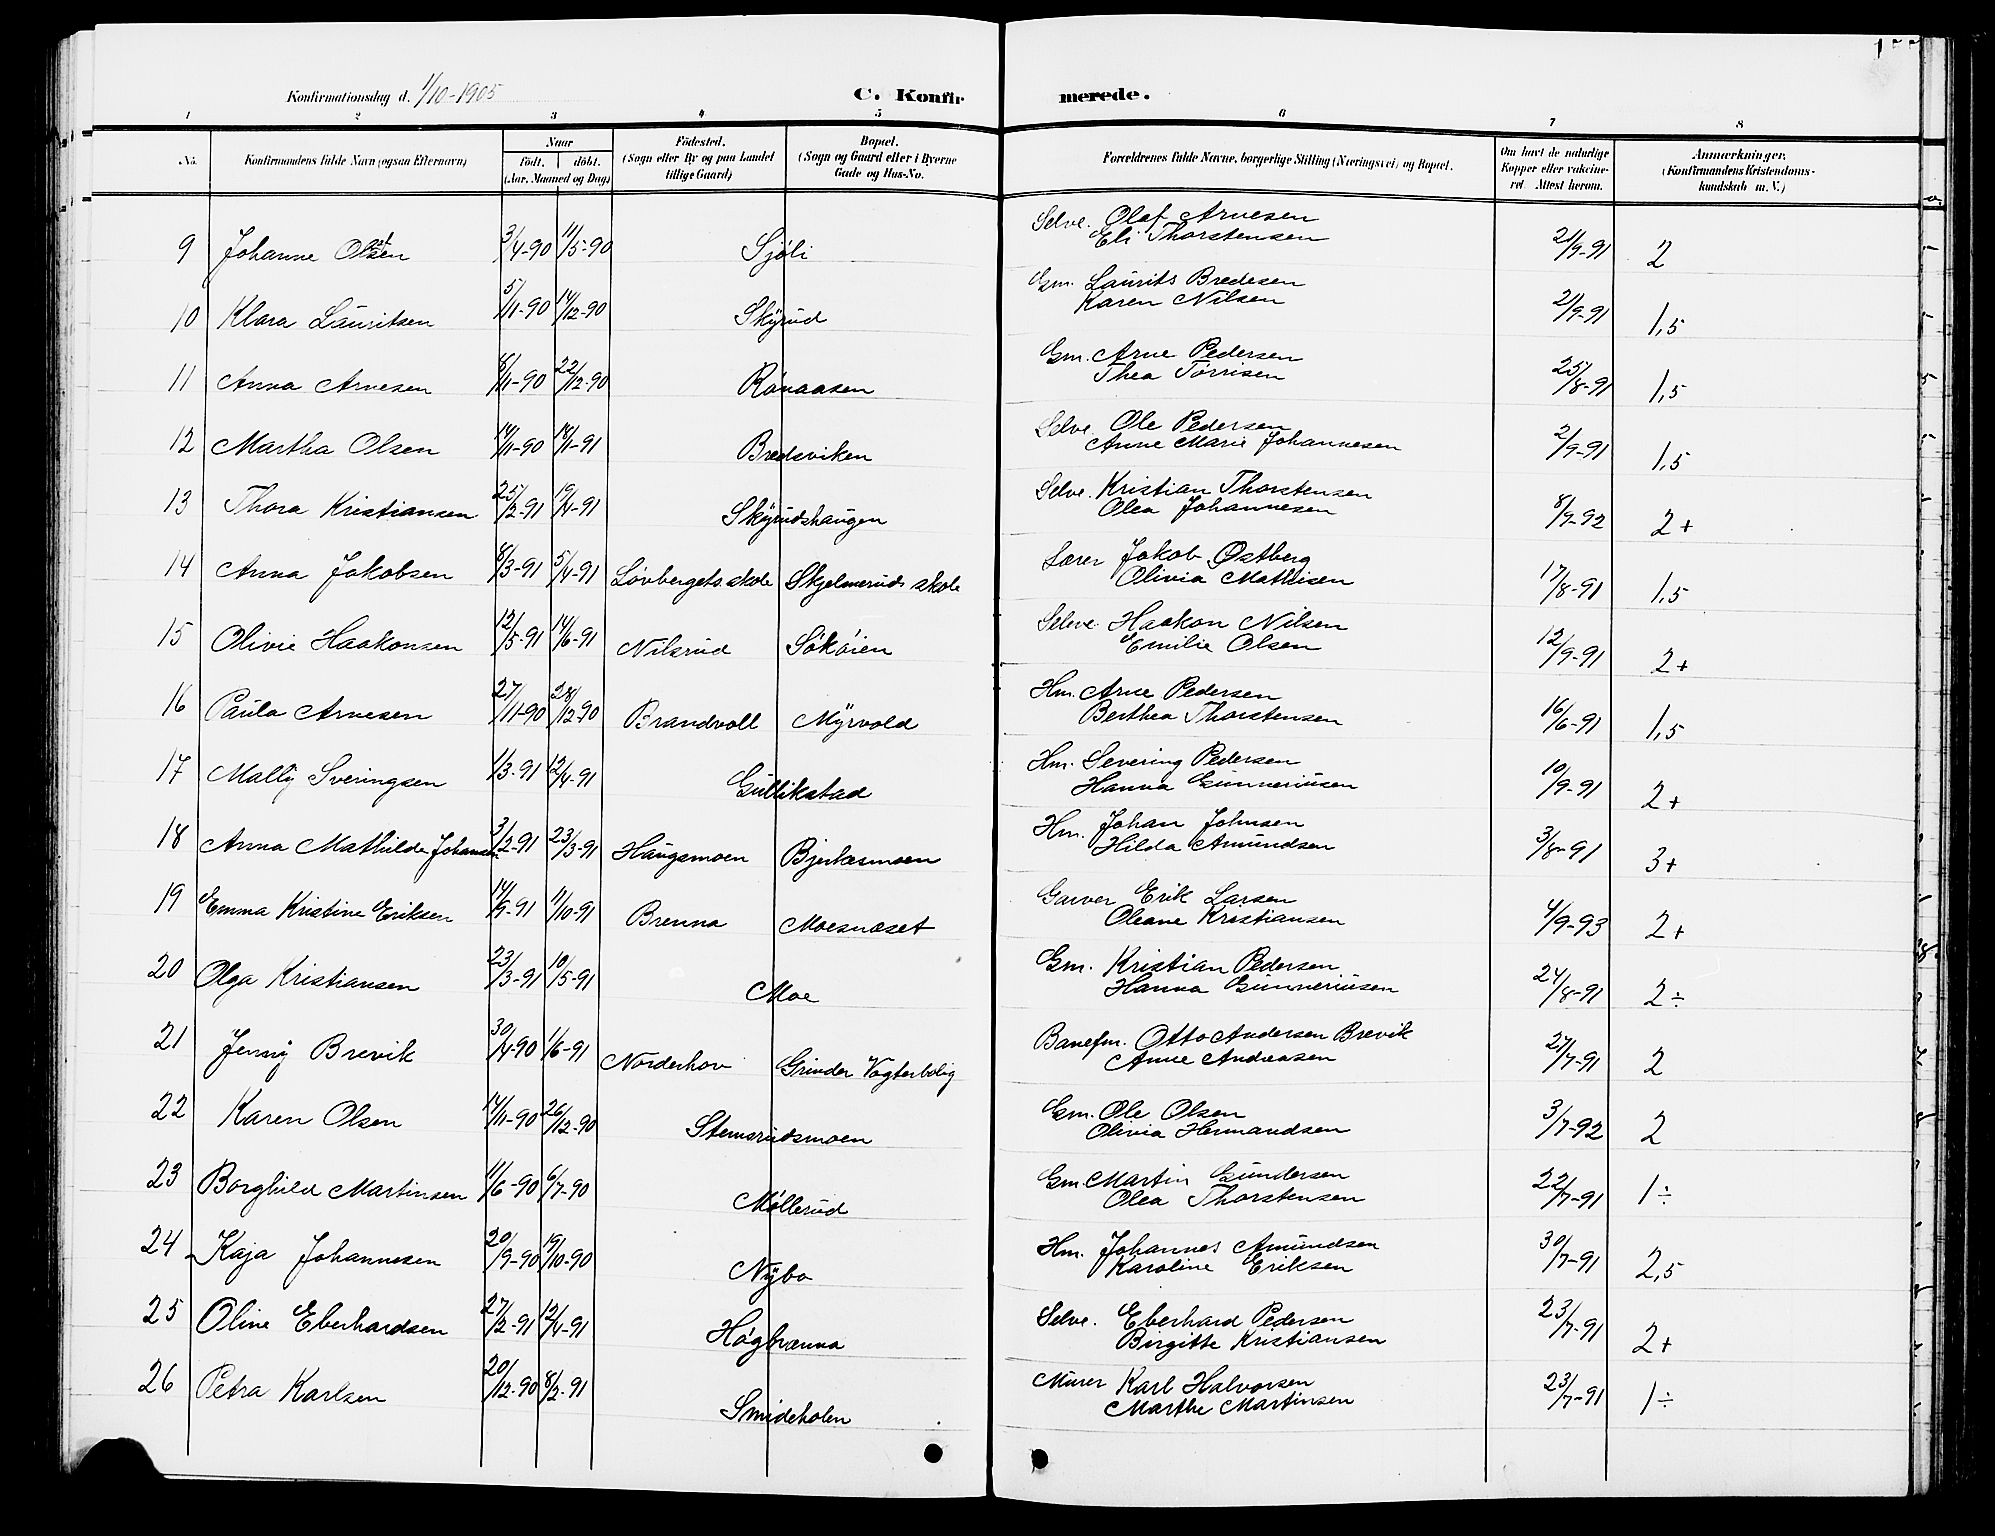 Konfirmationsdag d. 1/10-1905
C. Konfirmerede.
1 2 3 4 5 6 7 8
No. Konfirmandens fulde Navn (ogsaa Efternavn) Naar født. døbt. (Aar, Maaned og Dag) Fødested. (Sogn eller By og paa Landet tillige Gaard) Bopæl. (Sogn og Gaard eller i Byerne Gade og Hus-No. Forældrenes fulde Navne, borgerlige Stilling (Næringsvei) og Bopæl. Om havt de naturlige Kopper eller vakcineret. Attest herom. Anmærkninger. (Konfirmandens Kristendomskundskab m. V.)
9 Johanne Olsen 3/4-90 11/5-90 Sjøli Selve. Olaf Arnesen 21/9-91 2
Eli Thorstensen
10 Klara Lauritsen 5/11-90 14/12-90 Skyrud Gm. Laurits Bredesen 21/9-91 1,5
Karen Nilsen
11 Anna Arnesen 8/11-90 22/12-90 Rönaasen Gm. Arne Pedersen 25/8-91 1,5
Thea Törrisen
12 Martha Olsen 14/11-90 18/1-91 Bredsviken Selve. Ole Pedersen 2/9-91 1,5
Anne Marie Johannesen
13 Thora Kristiansen 25/2-91 19/4-91 Skyrudshaugen Selve. Kristian Thorstensen 8/9-92 2+
Olea Johannesen
14 Anna Jakobsen 8/3-91 5/4-91 Lövbergets skole Skjelmeruds skole Lærer Jakob Østberg 17/8-91 1,5
Olivia Mathisen
15 Olivie Haakonsen 12/5-91 14/6-91 Nilsrud Sökøien Selve. Haakon Nilsen 12/9-91 2+
Emilie Olsen
16 Paula Arnesen 27/11-90 28/12-90 Brandvoll Myrvold Hm. Arne Pedersen 16/6-91 1,5
Berthea Thorstensen
17 Mally Sveringsen 1/3-91 12/4-91 Gullikstad Hm. Severing Pedersen 10/9-91 2+
Hanna Gunneriusen
18 Anna Mathilde Johansen 3/2-91 23/3-91 Haugsmoen Bjerkesmoen Hm. Johan Johnsen 3/8-91 3+
Hilda Amundsen
19 Emma Kristine Eriksen 14/9-91 11/10-91 Brenna Moesnæset Garver Erik Larsen 4/9-93 2+
Oleane Kristiansen
20 Olga Kristiansen 23/3-91 10/5-91 Moe Gm. Kristian Pedersen 24/8-91 2÷
Hanna Gunneriusen
21 Jenny Brevik 30/4-90 1/6-91 Norderhov Grinder Vogterbolig Banefm. Otto Andersen Brevik 27/7-91 2
Anne Andreasen
22 Karen Olsen 14/11-90 26/12-90 Stemsrudsmoen Gm. Ole Olsen 3/7-92 2
Olivia Hermandsen
23 Borghild Martinsen 11/6-90 6/7-90 Møllerud Gm. Martin Gundersen 22/7-91 1÷
Olea Thorstensen
24 Kaja Johannesen 20/9-90 19/10-90 Nybo Hm. Johannes Amundsen 30/7-91 2,5
Karoline Eriksen
25 Oline Eberhardsen 27/2-91 12/4-91 Høgbrenna Selve. Eberhard Pedersen 23/7-91 2+
Birgitte Kristiansen
26 Petra Karlsen 20/12-90 8/2-91 Smideholen Murer Karl Halvorsen 23/7-91 1÷
Marthe Martinsen